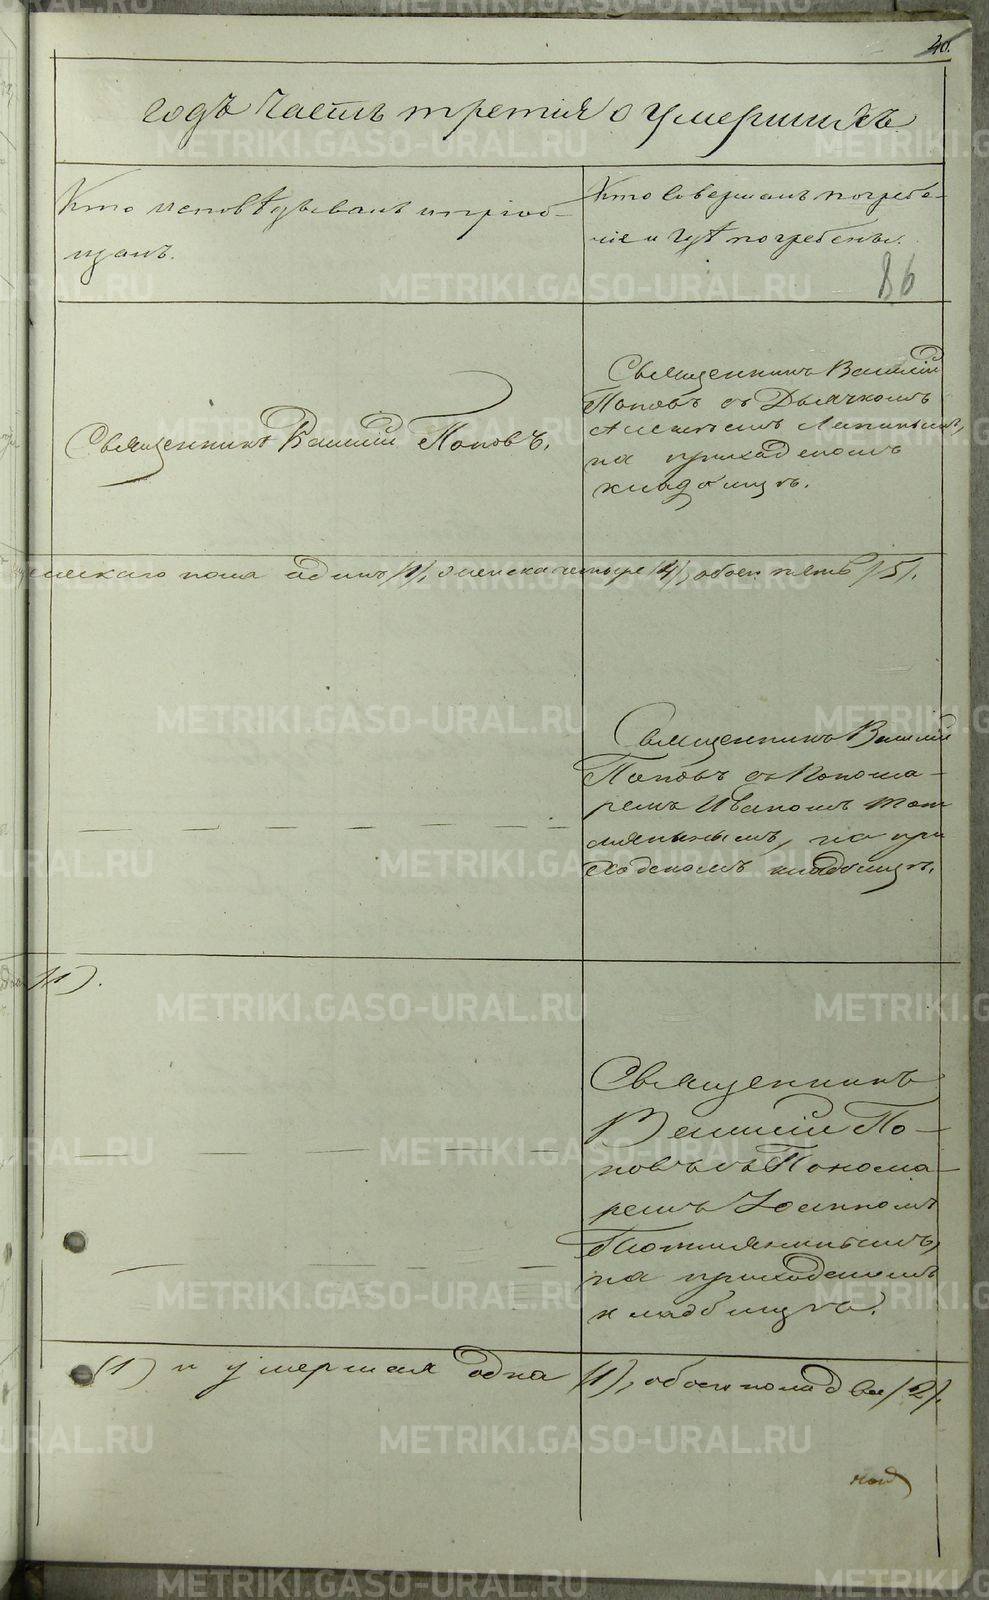 40.
годъ часть третія о умершихъ
Кто исповѣдывалъ и пріоб-
щалъ.
Кто совершалъ погребе-
ніе и гдѣ погребены.
86
Священникъ Василій Поповъ.
Священникъ Василій
Поповъ съ Дьячкомъ
на приходскомъ
кладбищѣ.
пола одинъ /1/, женска четыре /4/, обоего пять /5/.
Священникъ Василій
Поповъ съ Понома-
ремъ Иваномъ
на при
ходскомъ кладбищѣ.
/1/.
Священникъ
Василій По-
повъ съ Понома-
ремъ Іоанномъ
на приходскомъ
кладбищѣ.
(1) и умершая одна /1/, обоего пола две /2/.
METRIKI.GASO-URAL.RU